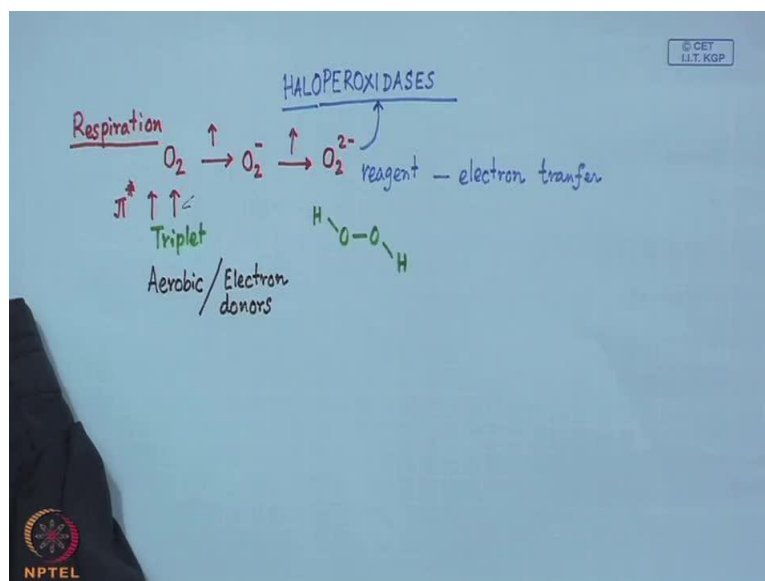 © CET
I.I.T. KGP
HALOPEROXIDASES
Respiration
O₂ ↑→ O₂⁻ ↑→ O₂²⁻
reagent – electron tranfer
π* ↑ ↑
Triplet
H
O–O
H
Aerobic / Electron
donors
NPTEL